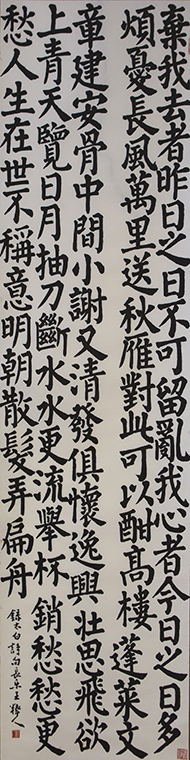 棄我去者昨日之日不可留亂我心者今日之日多
煩憂長風萬里送秋雁對此可以酣高樓蓬萊文
章建安骨中間小謝又清發俱懷逸興壯思飛欲
上青天覽日月抽刀斷水水更流舉杯銷愁愁更
愁人生在世不稱意明朝散髮弄扁舟
錄太白詩